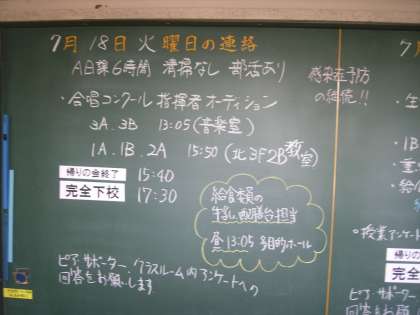 7月18日火曜日の連絡
A日第6時間 清掃なし 部活あり
感染症予防
の継続!!
・合唱コンクール指揮者オーディション
3A.3B 13:05(音楽室)
1A.1B.2A 15:50(北3F2B教室)
帰りの会終了 15:40
完全下校 17:30
給食委員の
牛乳・配膳台担当
昼13:05 多目的ホール
ピア・サポーター、クラスルーム内アンケートへの
回答をお願いします
7月
・授業アンケート
ピア・サポーター
回答をお願